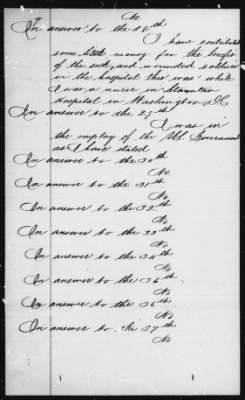 No
In answer to the 28th
I have contributed
some little money for the benefit
of the sick and wounded soldiers
in the hospital this was while
I was a nurse in Stanton
Hospital in Washington DC
In answer to the 29th
I was in
the employ of the U.S. Government
as I have stated
In answer to the 30th
No.
In answer to the 31st
No
In answer to the 32nd
No
In answer to the 33rd
No
In answer to the 34th
No
In answer to the 35th
No
In answer to the 36th
No
In answer to the 37th
No